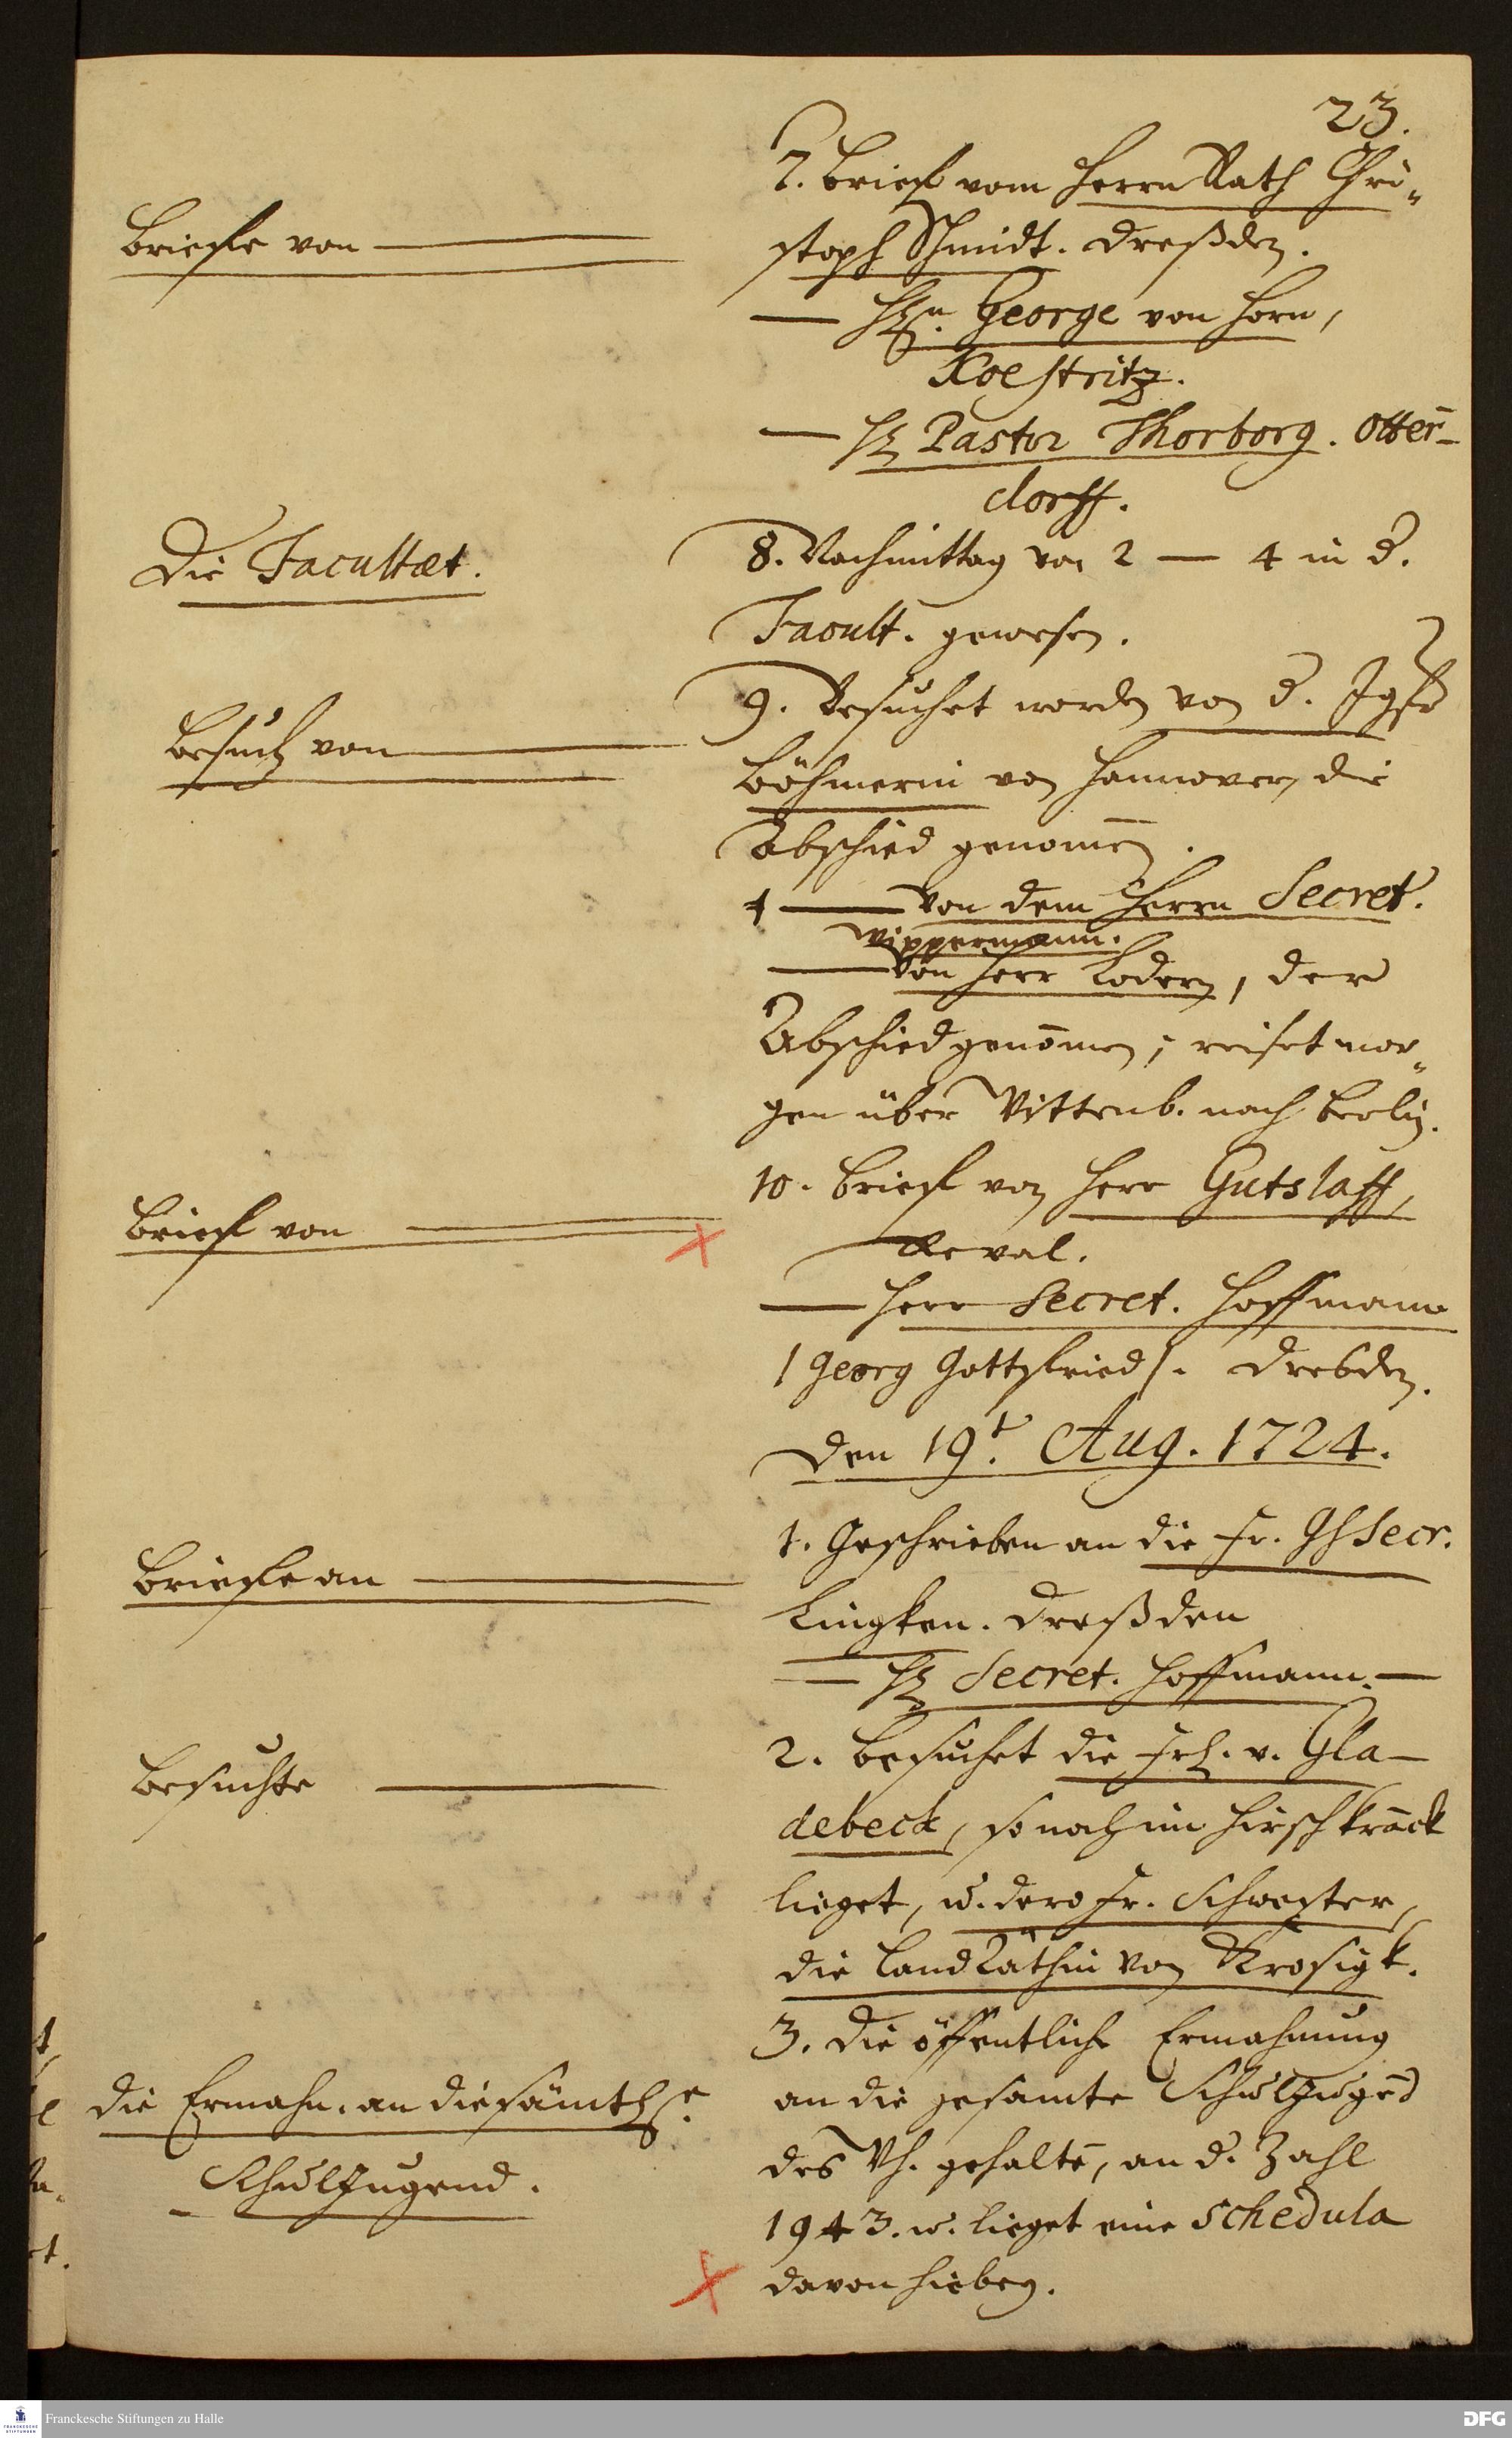 23.
Briefe von
7. Brief vom Herrn Rath Chri-
stoph Schmidt. Dreßden.
— HEn. George von Horn,
Koestritz.
— HE Pastor Thorborg. Otter-
dorff.
Die Facultæt.
8. Nachmittag von 2 — 4 in d.
Facult. gewesen.
Besuch von
9. Besuchet worden von d. Jgfr
Böhmerin von Hannover, die
Abschied genom̄en.
+ — Von dem Herrn Secret.
Wippermann.
— Von Herr Lodern, der
Abschied genom̄en; reiset mor-
gen über Wittenb. nach Berlin.
Brief von
10. Brief von Herr Gutslaff,
Reval.
— Herr Secret. Hoffmann
/Georg Gottfried/. Dresden.
Den 19t. Aug. 1724.
Briefe an
1. Geschrieben an die Fr. GhSecr.
Lingken. Dreßden
— HE Secret. Hoffmann. —
Besuchte
2. Besuchet die Frl. v. Gla-
debeck, so noch im Hirsch kranck
lieget, u. dero Fr. Schwester,
die LandRäthin von Krosigk.
Die Ermahn. an die sämtl.
Schuljugend.
3. Die öffentliche Ermahnung
an die gesamte Schuljugend
des Wh. gehalten, an d. Zahl
1943. u. lieget eine Schedula
davon hiebey.
Franckesche Stiftungen zu Halle
DFG